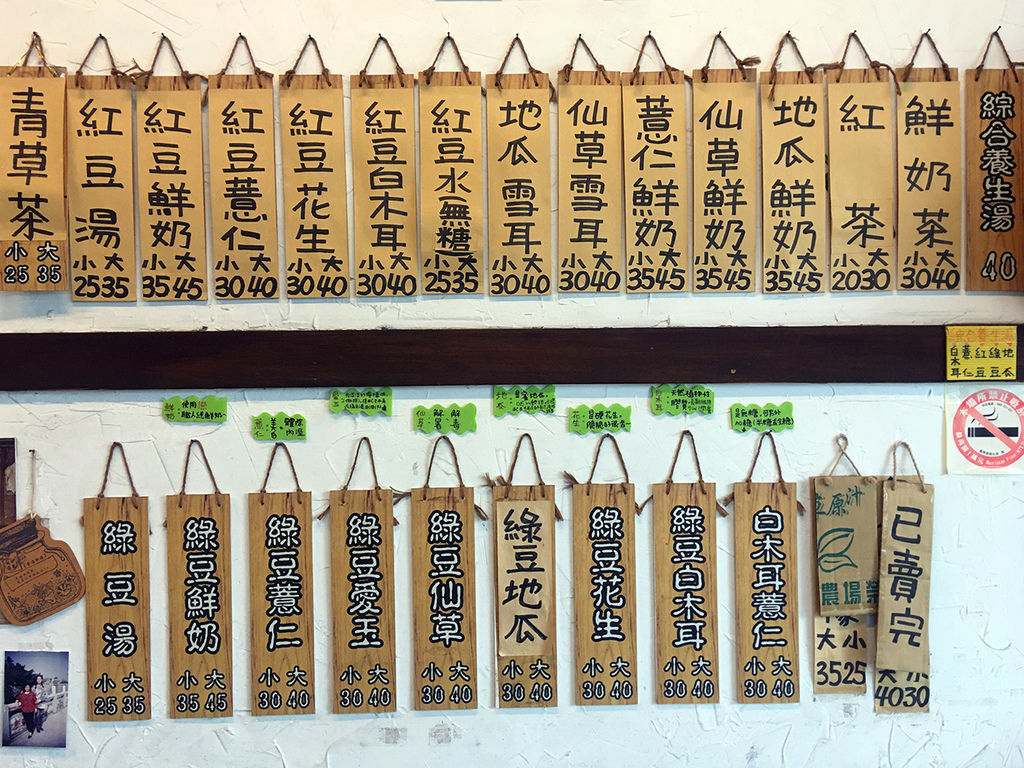 青草茶
小 大
25 35
紅豆湯
小 大
25 35
紅豆鮮奶
小 大
35 45
紅豆薏仁
小 大
30 40
紅豆花生
小 大
30 40
紅豆白木耳
小 大
30 40
紅豆水(無糖)
小 大
25 35
地瓜雪耳
小 大
30 40
仙草雪耳
小 大
30 40
薏仁鮮奶
小 大
35 45
仙草鮮奶
小 大
35 45
地瓜鮮奶
小 大
35 45
紅茶
小 大
20 30
鮮奶茶
小 大
30 40
綜合養生湯
40
綜合養生湯
白木耳
薏仁
紅豆
綠豆
地瓜
本場所禁止吸菸
綠豆湯
小 大
25 35
綠豆鮮奶
小 大
35 45
綠豆薏仁
小 大
30 40
綠豆愛玉
小 大
30 40
綠豆仙草
小 大
30 40
綠豆地瓜
小 大
30 40
綠豆花生
小 大
30 40
綠豆白木耳
小 大
30 40
白木耳薏仁
小 大
30 40
原汁
農場
大 小
35 25
已賣完
大 小
40 30